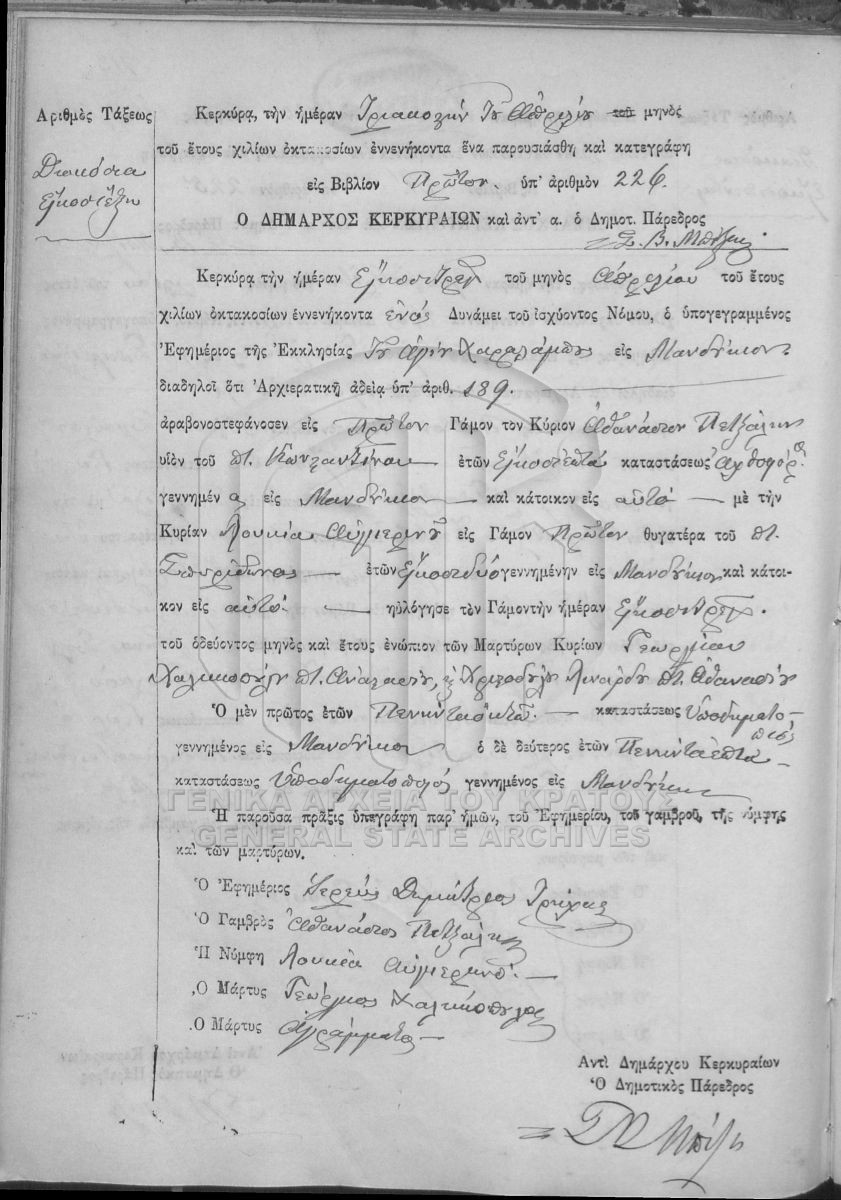 Ἀριθμὸς Τάξεως
Διακόσια
εἴκοσι ἕξη
Κερκύρᾳ, τὴν ἡμέραν Τριακοστὴν τοῦ Ἀπριλίου τοῦ μηνὸς
τοῦ ἔτους χιλίων ὀκτακοσίων ἐννενήκοντα ἕνα παρουσιάσθη καὶ κατεγράφη
εἰς Βιβλίον Πρῶτον. ὑπ' ἀριθμὸν 226.
Ο ΔΗΜΑΡΧΟΣ ΚΕΡΚΥΡΑΙΩΝ καὶ ἀντ' α. ὁ Δημοτ. Πάρεδρος
Σ. Β.
Κερκύρᾳ τὴν ἡμέραν τοῦ μηνὸς Ἀπριλίου τοῦ ἔτους
χιλίων ὀκτακοσίων ἐννενήκοντα ἑνὸς Δυνάμει τοῦ ἰσχύοντος Νόμου, ὁ ὑπογεγραμμένος
Ἐφημέριος τῆς Ἐκκλησίας τοῦ Ἁγίου Χαραλάμπους εἰς Μανδούκιον
διαδηλοῖ ὅτι Ἀρχιερατικῇ ἀδείᾳ ὑπ' ἀριθ. 189.
ἀραβονοστεφάνοσεν εἰς Πρῶτον Γάμον τὸν Κύριον Ἀθανάσιον Πετζάλην
υἱὸν τοῦ π̅τ. Κωνσταντίνου ἐτῶν εἴκοσι ἑπτὰ καταστάσεως Ἀχθοφόρ.
γεννημέν α εἰς Μανδούκιον καὶ κάτοικον εἰς αὐτὸ μὲ τὴν
Κυρίαν Λουκία Αὐγερινοῦ εἰς Γάμον Πρῶτον θυγατέρα τοῦ π̅τ.
Σπυρίδωνος ἐτῶν εἴκοσι δύο γεννημένην εἰς Μανδούκιον καὶ κάτοι-
κον εἰς αὐτό. ηὐλόγησε τὸν Γάμον τὴν ἡμέραν
τοῦ ὁδεύοντος μηνὸς καὶ ἔτους ἐνώπιον τῶν Μαρτύρων Κυρίων Γεωργίου
Χαλικιοπούλου π̅τ. Ἀναστασίου, Χριστοδούλου π̅τ. Ἀθανασίου
Ὁ μὲν πρῶτος ἐτῶν Πενῆντα ὀκτώ. καταστάσεως Ὑποδηματο-
ποιός
γεννημένος εἰς Μανδούκιον ὁ δὲ δεύτερος ἐτῶν Πενῆντα ἑπτὰ
καταστάσεως Ὑποδηματοποιός γεννημένος εἰς Μανδούκιον
ΓΕΝΙΚΑ ΑΡΧΕΙΑ ΤΟΥ ΚΡΑΤΟΥΣ
Ἡ παροῦσα πρᾶξις ὑπεγράφη παρ' ἡμῶν, τοῦ Ἐφημερίου, τοῦ γαμβροῦ, τῆς νύμφης
GENERAL STATE ARCHIVES
καὶ τῶν μαρτύρων.
Ὁ Ἐφημέριος Ἱερεὺς Δημήτριος
Ὁ Γαμβρὸς Ἀθανάσιος Πετζάλης
Ἡ Νύμφη Λουκία Αὐγερινοῦ.
Ὁ Μάρτυς Γεώργιος Χαλικιόπουλος
Ὁ Μάρτυς Ἀγράμματος
Ἀντὶ Δημάρχου Κερκυραίων
Ὁ Δημοτικὸς Πάρεδρος